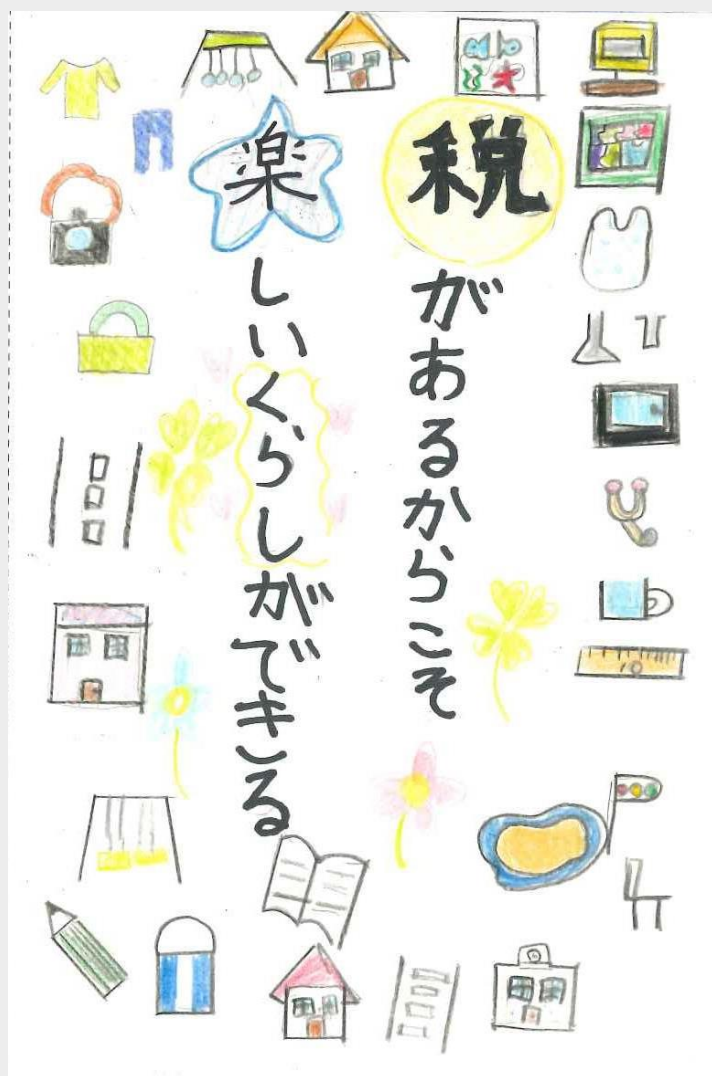 税があるからこそ
楽しいくらしができる